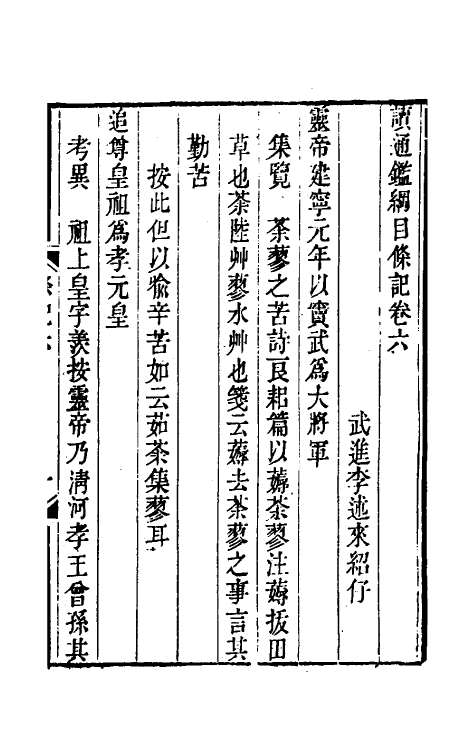 讀通鑑綱目條記卷六
武進李述來紹仔
靈帝建寧元年以竇武爲大將軍
集覽　荼蓼之苦詩良耜篇以薅荼蓼注薅拔田
草也荼陸艸蓼水艸也箋云薅去荼蓼之事言其
勤苦
按此但以喩辛苦如云茹荼集蓼耳
追尊皇祖爲孝元皇
考異　祖上皇字羨按靈帝乃清河孝王曾孫其